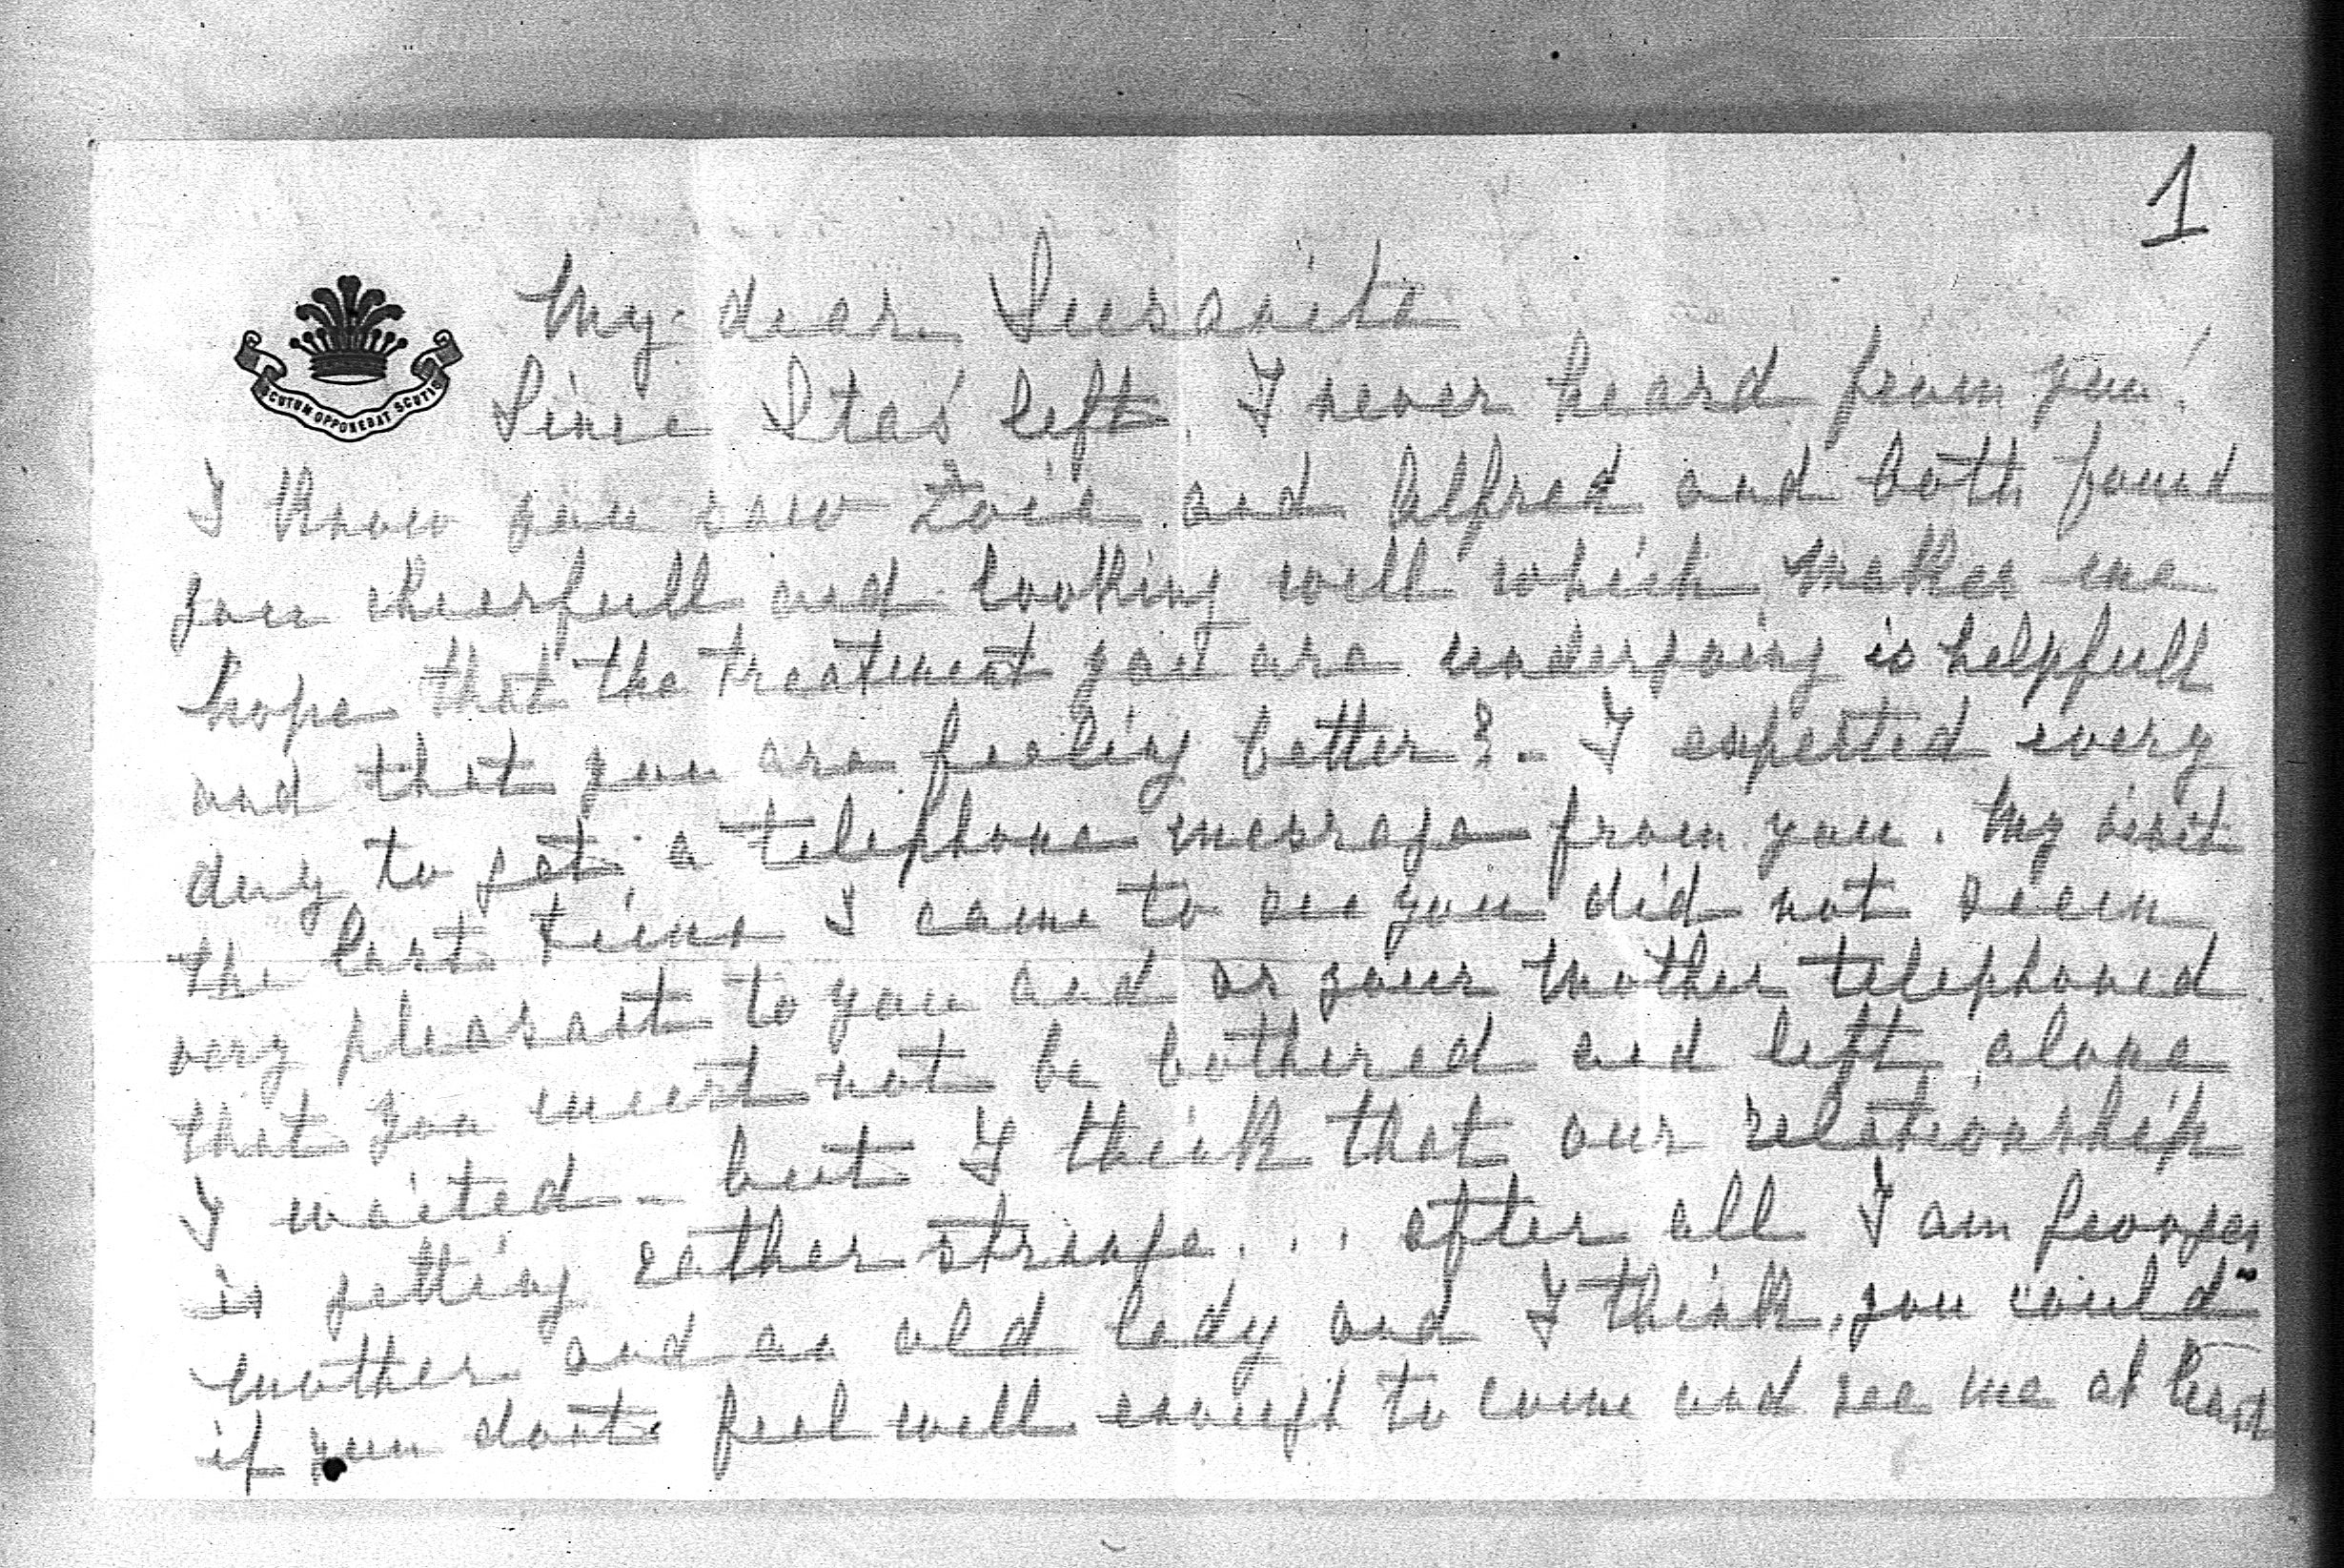 1
SCUTUM OPPONEBAT SCUTIS
My dear Susanita
Since Ita's left I never heard from you!
I know you saw and Alfred and both found
you cheerfull and looking well which makes me
hope that the treatment you are undergoing is helpfull
and that you are feeling better? - I expected every
day to get a telephone message from you. My visit
the last time I came to see you did not seem
very pleasant to you and as your mother telephoned
that you must not be bothered and left alone
I waited - but I think that our relationship
is getting rather strange... after all I am Georges
mother and an old lady and I think, you could
if you dont feel well enough to come and see me at least